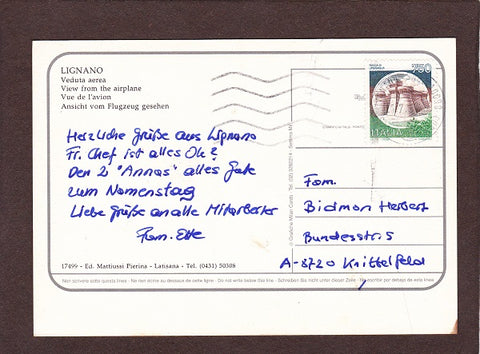 LIGNANO
Veduta aerea
View from the airplane
Vue de l'avion
Ansicht vom Flugzeug gesehen
Herzliche Grüße aus Lignano
Fr. Chef ist alles Ok?
Den 2 "Annas" alles Gute
zum Namenstag
Liebe Grüße an alle Mitarbeiter
Fam.
750
ITALIA
Fam.
Bidmon Herbert
Bundesstr. 5
A-8720 Knittelfeld
17499 - Ed. Mattiussi Pierina - Latisana - Tel. (0431) 50308
Non scrivere sotto questa linea - Ne rien écrire au dessous de cette ligne - Do not write below line - Schreiben Sie nicht unter dieser Zeile - No escribir por debajo de esta linea